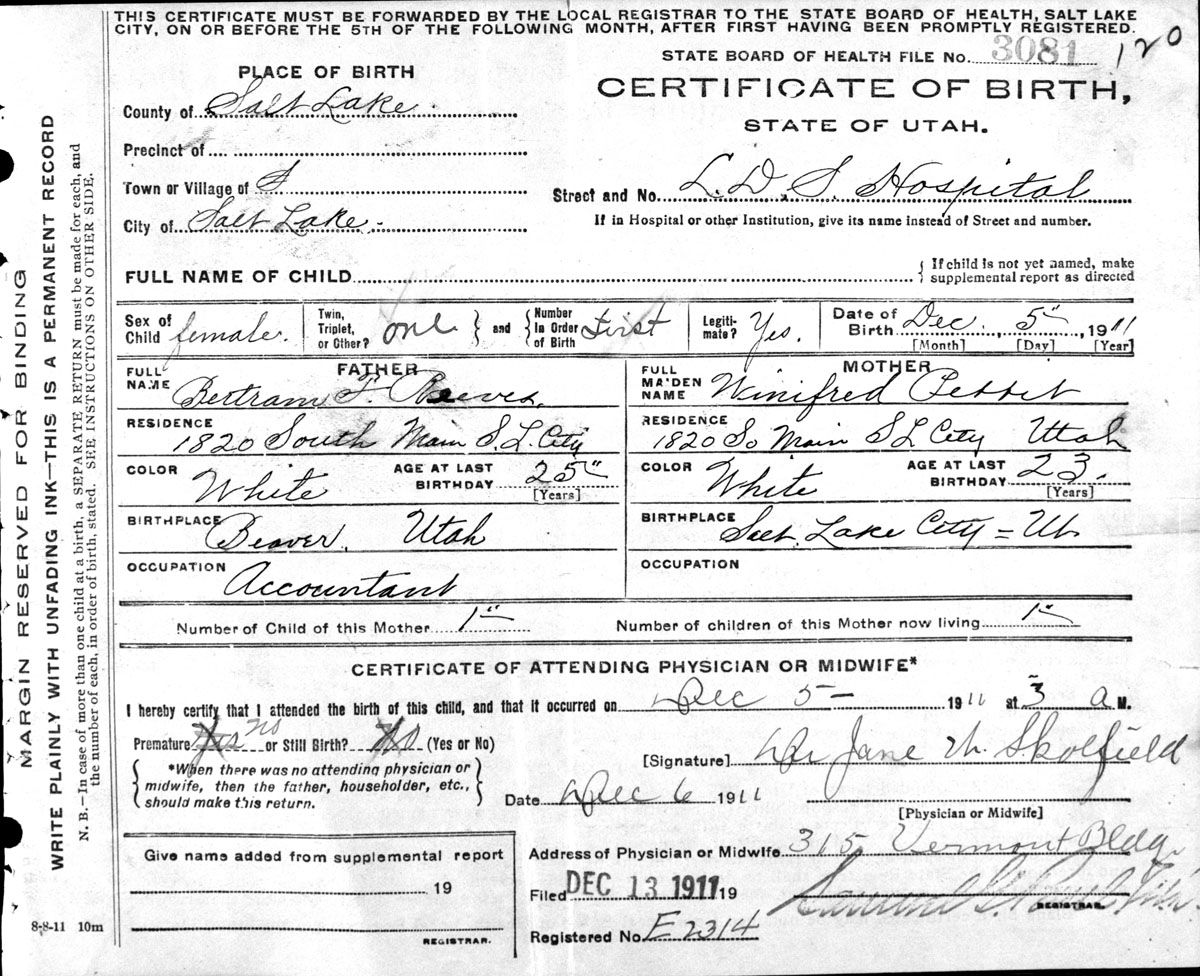 THIS CERTIFICATE MUST BE FORWARDED BY THE LOCAL REGISTRAR TO THE STATE BOARD OF HEALTH, SALT LAKE
CITY, ON OR BEFORE THE 5TH OF THE FOLLOWING MONTH, AFTER FIRST HAVING BEEN PROMPTLY REGISTERED.
STATE BOARD OF HEALTH FILE No. 3081 120
PLACE OF BIRTH
CERTIFICATE OF BIRTH,
County of Salt Lake.
STATE OF UTAH.
Precinct of
Town or Village of S
Street and No. L. D. S. Hospital
City of Salt Lake.
If in Hospital or other Institution, give its name instead of Street and number.
FULL NAME OF CHILD { If child is not yet named, make
supplemental report as directed
Sex of Child female. Twin, Triplet, or Other? one } and { Number In Order of Birth first Legitimate? Yes. Date of Birth Dec. 5", 1911
[Month] [Day] [Year]
FATHER
FULL NAME Bertram F. Reeves.
RESIDENCE
1820 South Main S. L. City
COLOR White AGE AT LAST BIRTHDAY 25"
[Years]
BIRTHPLACE Beaver. Utah
OCCUPATION Accountant
MOTHER
FULL MAIDEN NAME Winifred Pettit
RESIDENCE
1820 So Main S L City Utah
COLOR White AGE AT LAST BIRTHDAY 23.
[Years]
BIRTHPLACE Salt Lake City = Ut
OCCUPATION
Number of Child of this Mother 1" Number of children of this Mother now living 1"
CERTIFICATE OF ATTENDING PHYSICIAN OR MIDWIFE*
I hereby certify that I attended the birth of this child, and that it occurred on Dec 5- 1911 at 3 a M.
Premature Yes no or Still Birth? No (Yes or No)
[Signature] Dr Jane W. Skolfield
{ *When there was no attending physician or
midwife, then the father, householder, etc.,
should make this return. }
Date Dec 6 1911
[Physician or Midwife]
Give name added from supplemental report
19
REGISTRAR.
Address of Physician or Midwife 315 Vermont Bldg.
Filed DEC 13 1911 19
REGISTRAR.
Registered No. E2314
8-8-11 10m
MARGIN RESERVED FOR BINDING
WRITE PLAINLY WITH UNFADING INK—THIS IS A PERMANENT RECORD
N. B.—In case of more than one child at a birth, a SEPARATE RETURN must be made for each, and
the number of each, in order of birth, stated. SEE INSTRUCTIONS ON OTHER SIDE.